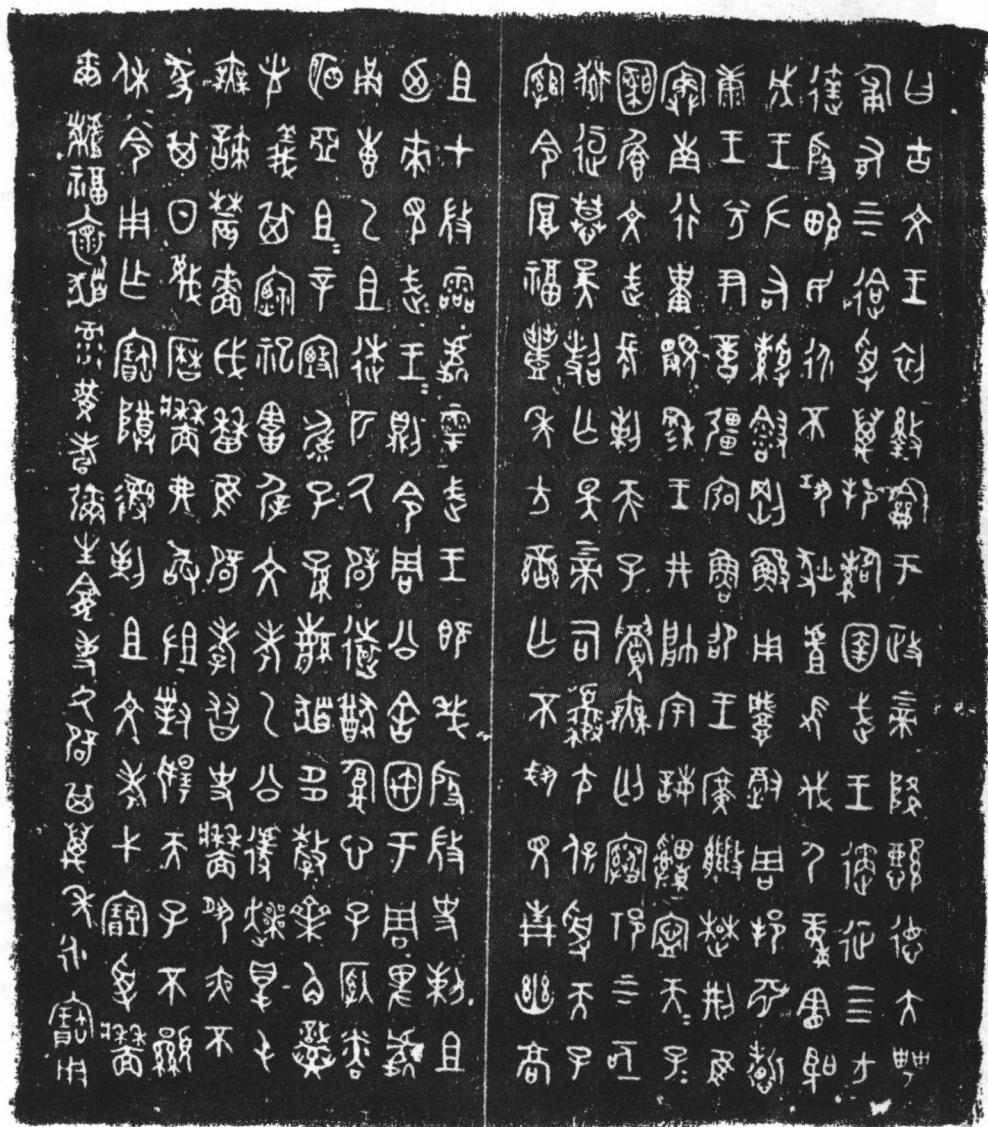 曰古文王初盭龢于政上帝降懿德大甹
匍有上下迨受萬邦圉武王遹征四方
達殷畯民永不巩狄虘伐尸童憲聖
成王左右綬剛鯀用肇徹周邦淵哲
康王兮尹億彊宏魯卲王廣楚荊隹
寏南行祗覭穆王井帥宇誨寧天子=
文武長剌天子眉無匄寋祁上下亟
桓慕昊照亡斁上帝司夒尤保受天子
綰令厚福豐年方蠻亡不見青幽高
且才微霝處雩武王既殷微史剌且
迺來見武王=則令周公舍宇于周卑處
甬叀乙且逨匹氒辟遠猷腹心子納粦
明亞且=辛毓子孫繁猶多孷齊角熾
光義其禋祀害屖文考乙公遽爽得屯
無諫農嗇戉曆隹辟孝友史牆夙夜不
墜其日蔑曆牆弗敢沮對揚天子不顯
休令用乍寶尊彝剌且文考弋寶受牆
爾福懷猶彔黃耇彌生龕事氒辟其萬年永寶用